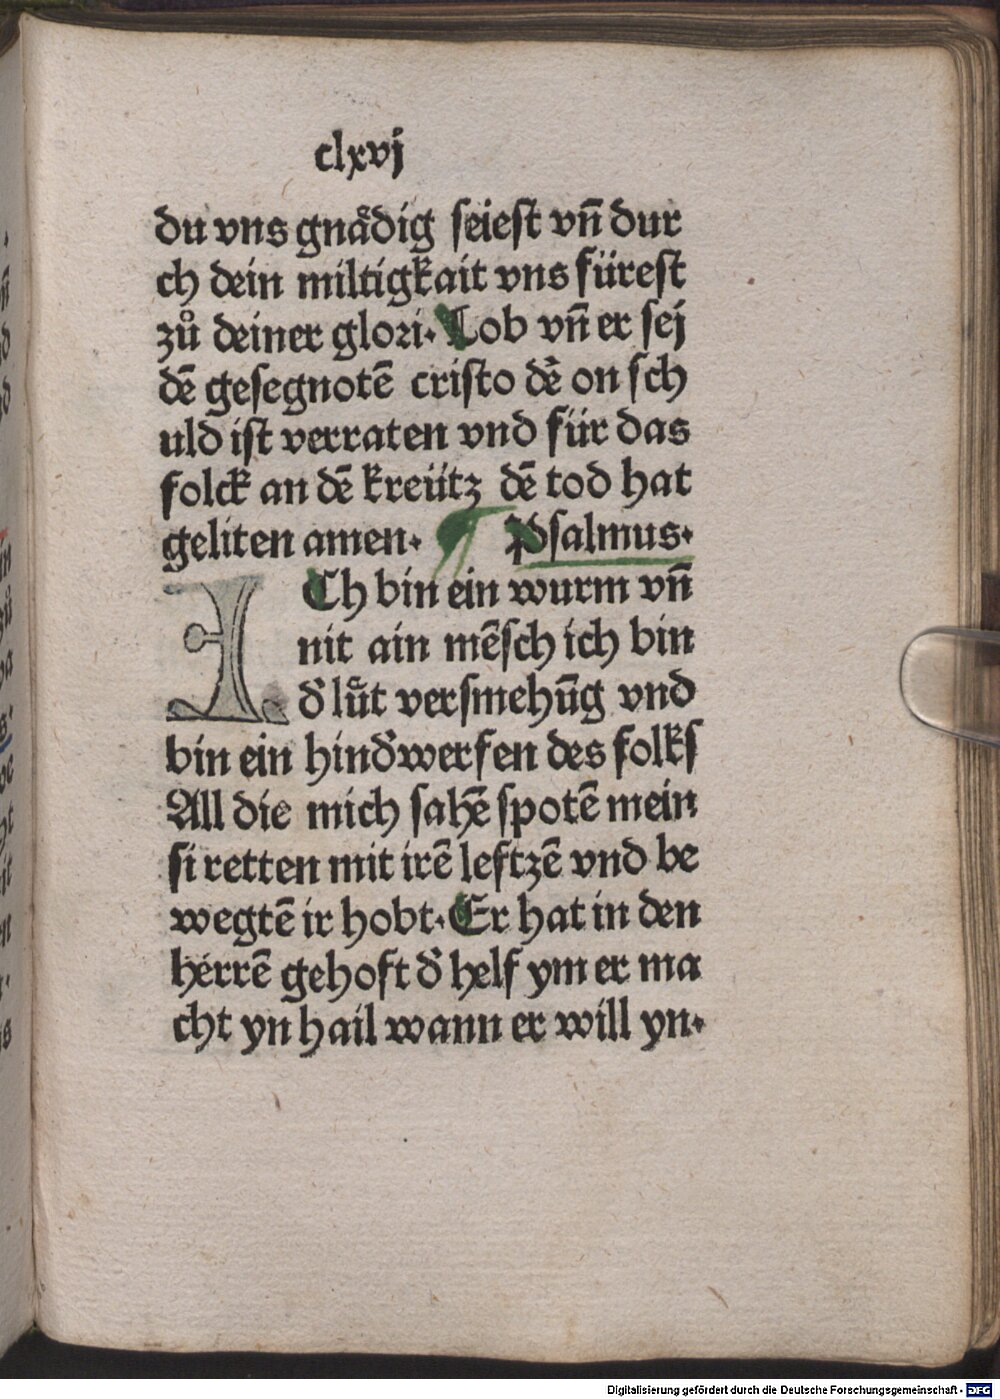 clxvj
du vns gnaͤdig seiest vn̄ dur
ch dein miltigkait vns fürest
zuͦ deiner glori. Lob vn̄ er sej
dē gesegnotē cristo dē on sch
uld ist verraten vnd für das
folck an dē kreütz dē tod hat
geliten amen. ¶ Psalmus.
ICh bin ein wurm vn̄
nit ain mēsch ich bin
d̓ luͤt versmehūg vnd
bin ein hind̓werfen des folks
All die mich sahē spotē mein
si retten mit irē leftzē vnd be
wegtē ir hobt. Er hat in den
herrē gehoft d̓ helf ym er ma
cht yn hail wann er will yn.
Digitalisierung gefördert durch die Deutsche Forschungsgemeinschaft - DFG